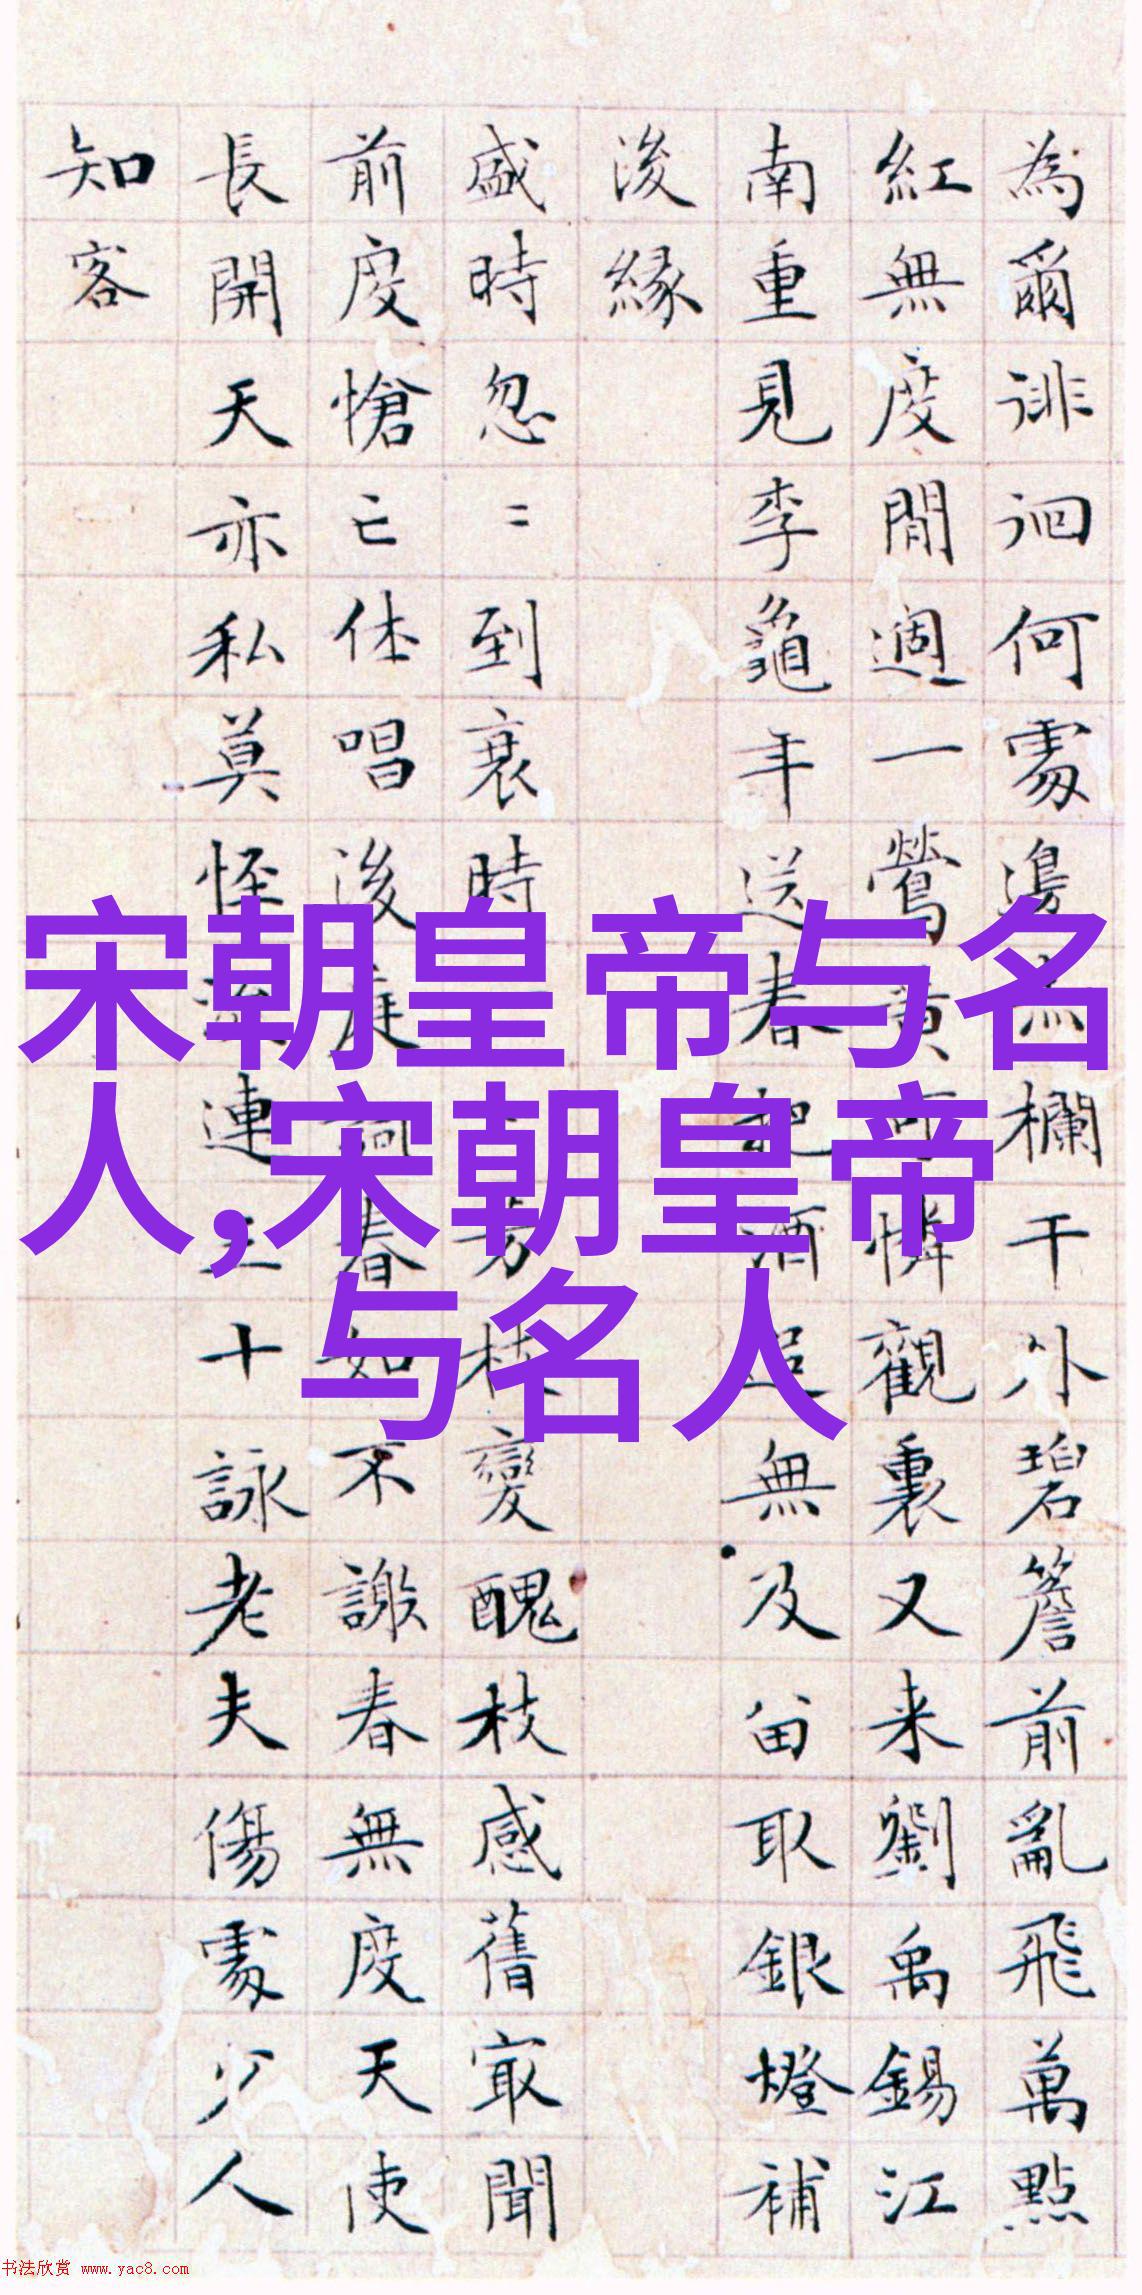 為爾徘徊何處邊赤欄干外碧簷前亂飛萬點
紅無度閒遶一鶯黃可憐觀裏又来劉禹錫江
南重見李龜年送春把酒追無及留取銀燈補
後緣
盛時忽〻到衰時一芳枝變醜枝感舊最聞
前度愴亡休唱後庭詞春如不謝春無度天使
長開天亦私莫怪連三十詠老夫傷處少人
知客
宋朝皇帝与名
人,宋朝皇帝
与名人
书法欣赏 www.yac8.com